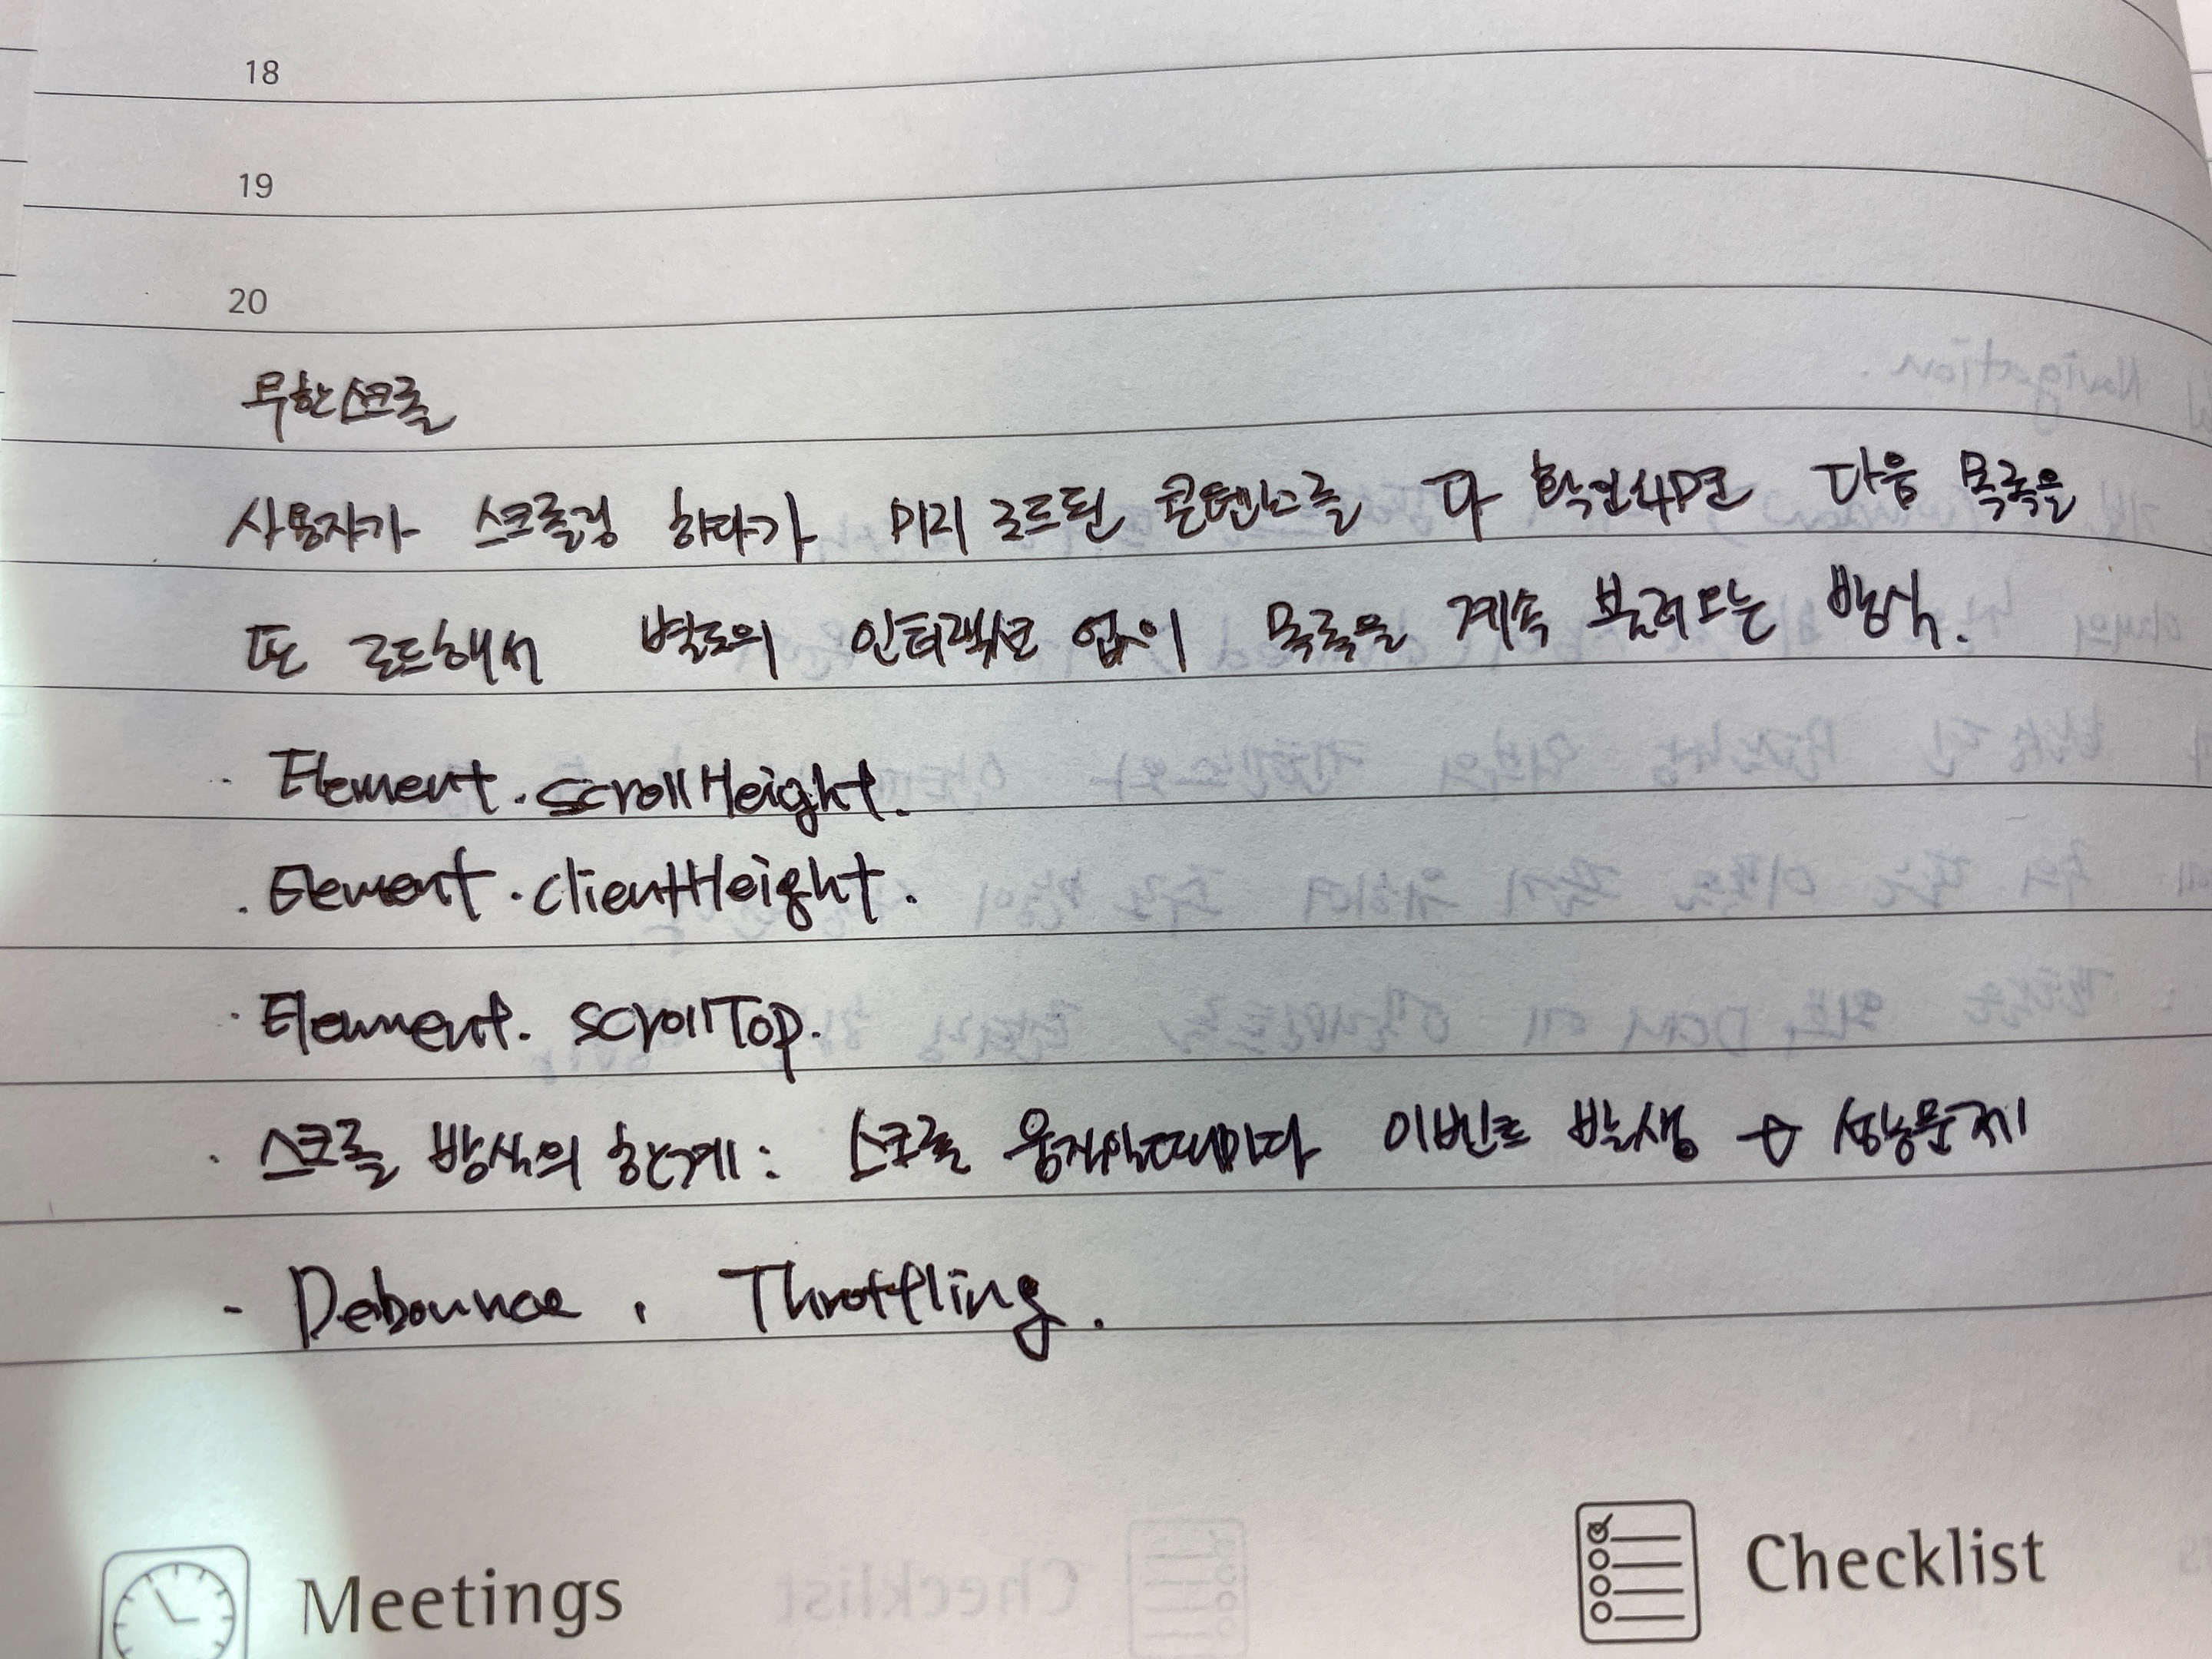 18
19
20
무한스크롤
사용자가 스크롤링 하다가 미리 로드된 콘텐츠를 다 확인하면 다음 목록을
또 로드해서 별도의 인터랙션 없이 목록을 계속 불러오는 방식.
· Element.scrollHeight.
· Element.clientHeight.
· Element. scrollTop.
· 스크롤 방식의 한계: 스크롤 움직일때마다 이벤트 발생 → 성능문제
- Debounce, Throttling.
Meetings
Checklist